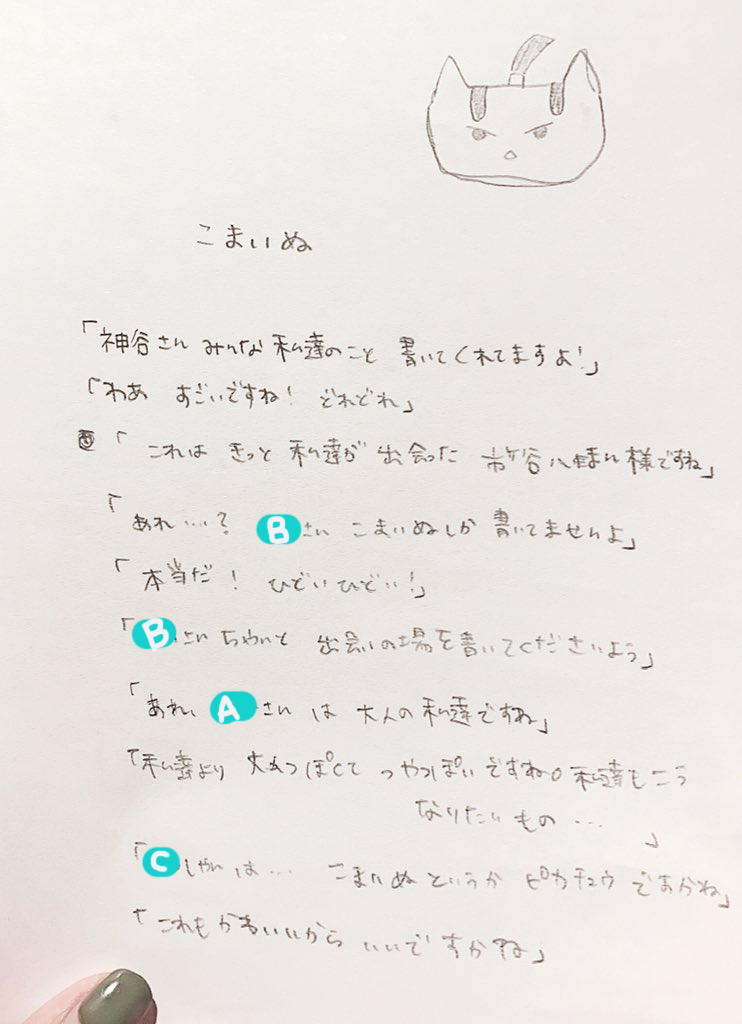 こまいぬ
「神谷さん みんな 私達のこと 書いてくれてますよ!」
「わあ すごいですね! どれどれ」
「これは きっと 私達が 出会った 市ヶ谷八幡様ですね」
「あれ…? Bさん こまいぬしか 書いてませんよ」
「本当だ! ひどいひどい!」
「Bさん ちゃんと 出会いの場を書いてくださいよう」
「あれ、Aさん は 大人の 私達ですね」
「私達より 大人っぽくて つやっぽいですね。私達もこう
なりたいもの…」
「Cしゃん は… こまいぬ というか ピカチュウ ですかね」
「これもかわいいから いいですかね」